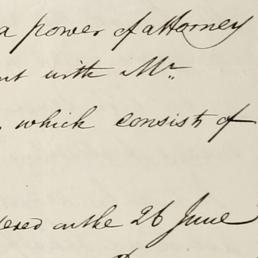 a power of attorney
with Mr
which consists of
on the 26 June